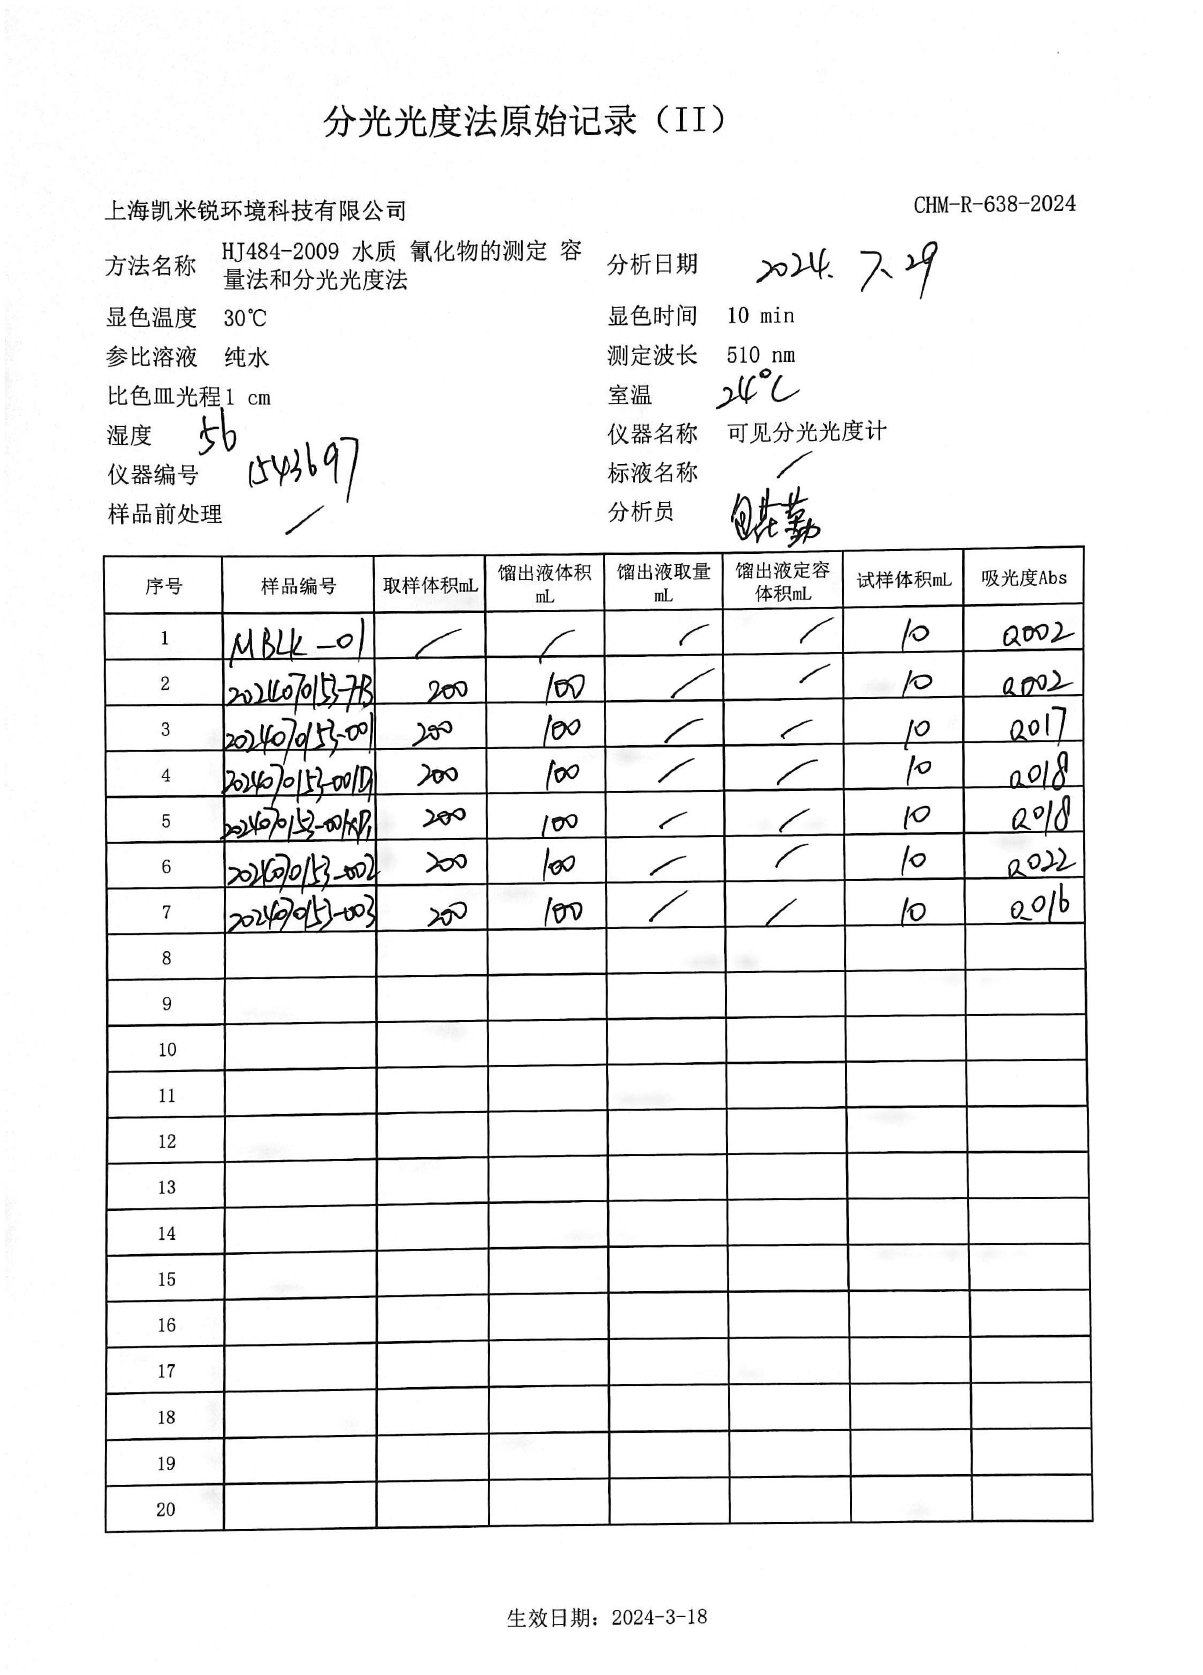 分光光度法原始记录（II）
上海凯米锐环境科技有限公司 CHM-R-638-2024
方法名称 HJ484-2009 水质 氰化物的测定 容量法和分光光度法 分析日期 2024.7.29
显色温度 30℃ 显色时间 10 min
参比溶液 纯水 测定波长 510 nm
比色皿光程1 cm 室温 24℃
湿度 56 仪器名称 可见分光光度计
仪器编号 1543697 标液名称 /
样品前处理 / 分析员
序号 样品编号 取样体积mL 馏出液体积mL 馏出液取量mL 馏出液定容体积mL 试样体积mL 吸光度Abs
1 MBLK-01 / / / / 10 0.002
2 2024070153-7B 200 100 / / 10 0.002
3 2024070153-001 200 100 / / 10 0.017
4 2024070153-001D1 200 100 / / 10 0.018
5 2024070153-001XD1 200 100 / / 10 0.018
6 2024070153-002 200 100 / / 10 0.022
7 2024070153-003 200 100 / / 10 0.016
8
9
10
11
12
13
14
15
16
17
18
19
20
生效日期：2024-3-18